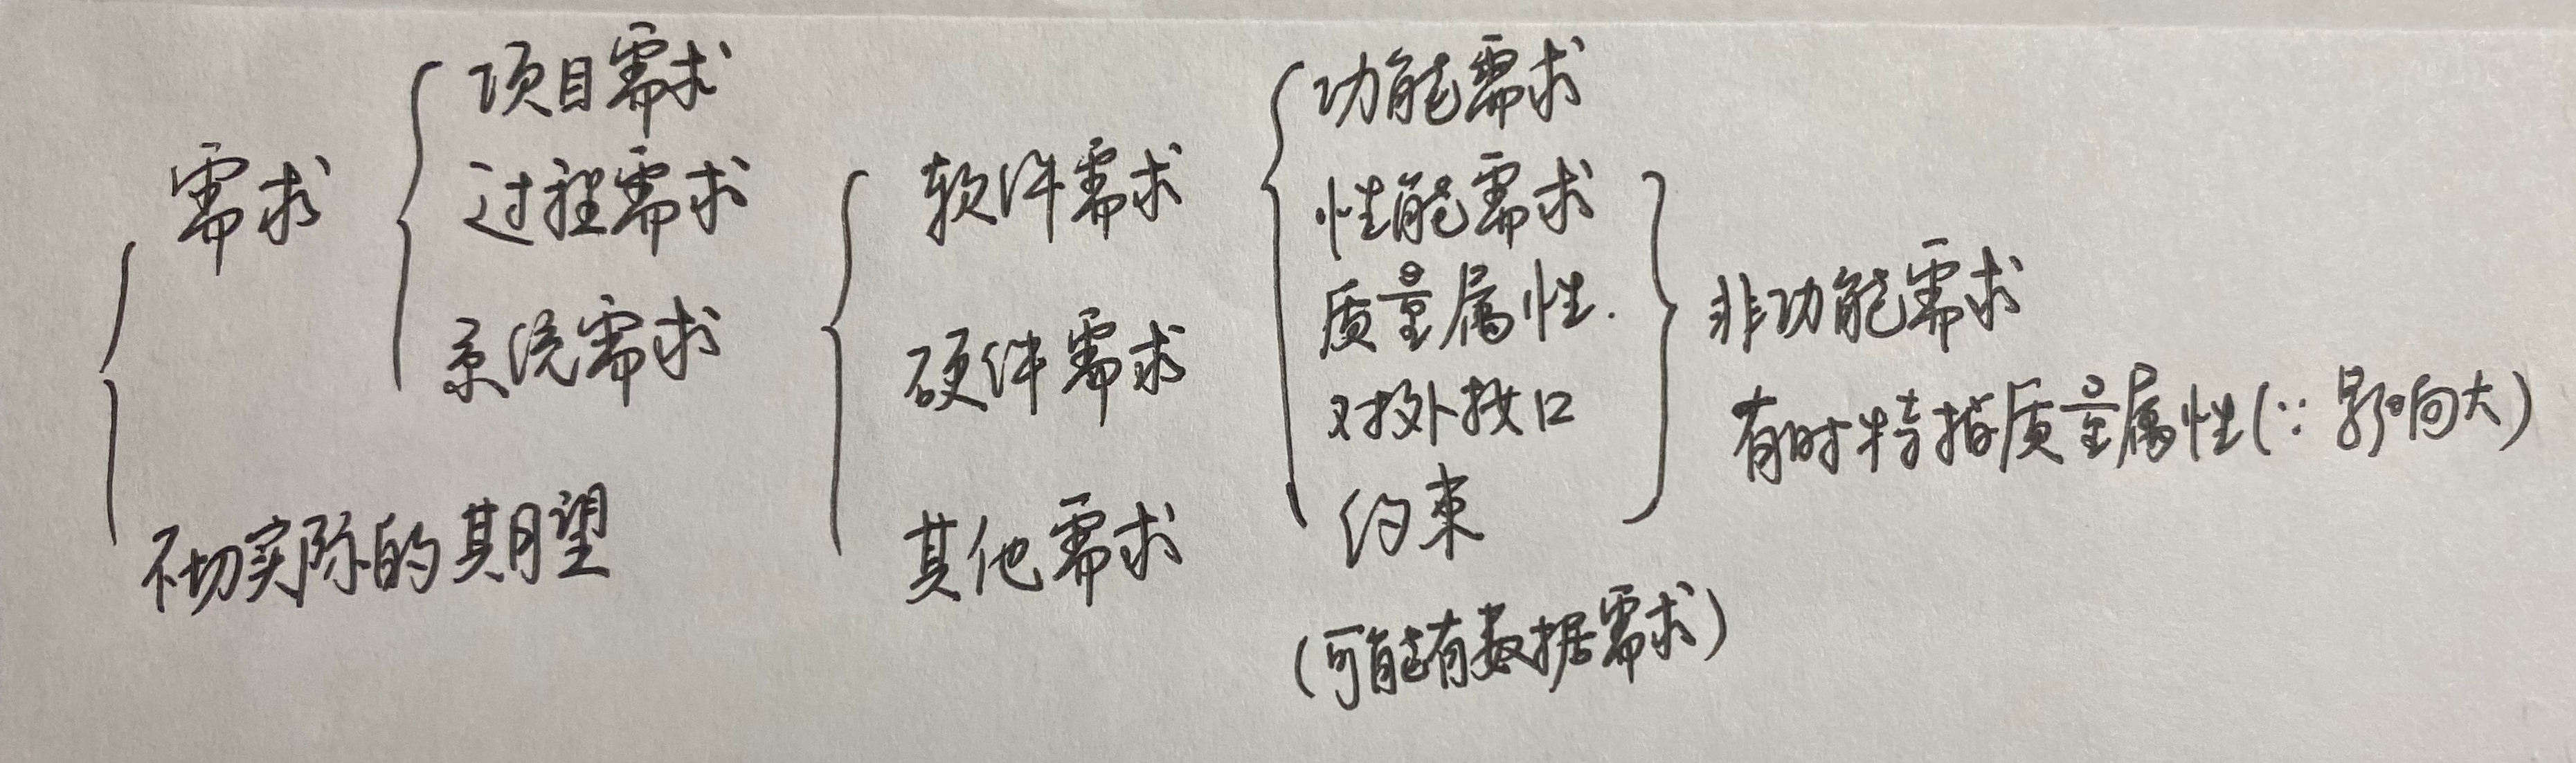 需求
项目需求
过程需求
系统需求
不切实际的期望
软件需求
硬件需求
其他需求
功能需求
性能需求
质量属性.
对外接口
约束
(可能有数据需求)
非功能需求
有时特指质量属性(∵影响大)